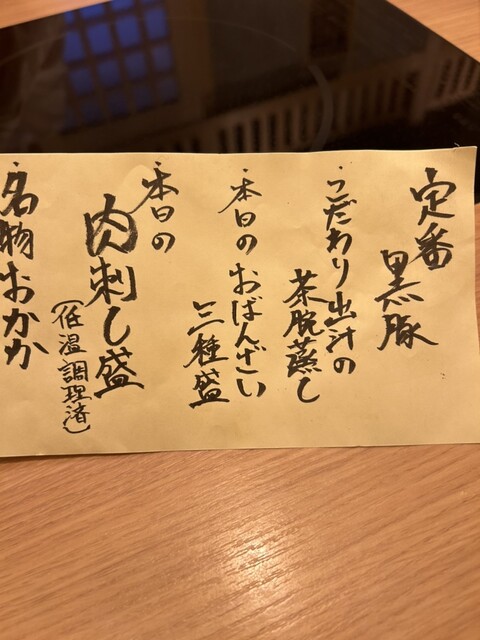 定番
黒豚
・こだわり出汁の
茶碗蒸し
・本日のおばんざい
三種盛
・本日の
肉刺し盛
(低温調理済)
・名物おかか